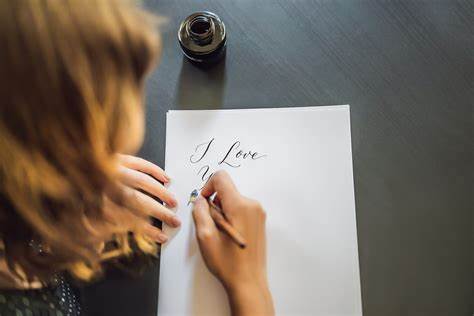 I Love
Y